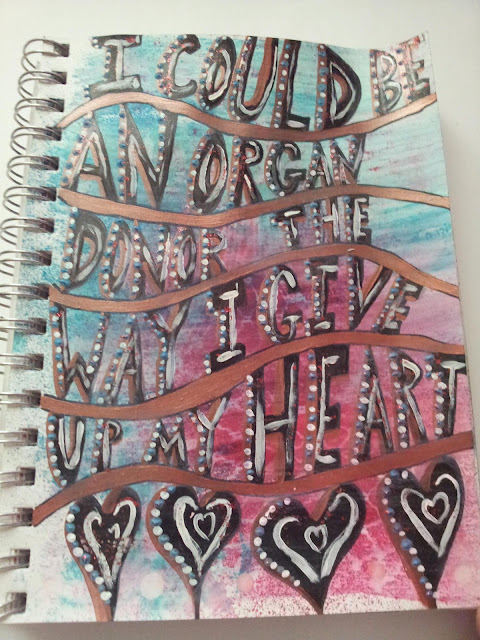 I COULD BE
AN ORGAN
DONOR THE
WAY I GIVE
UP MY HEART